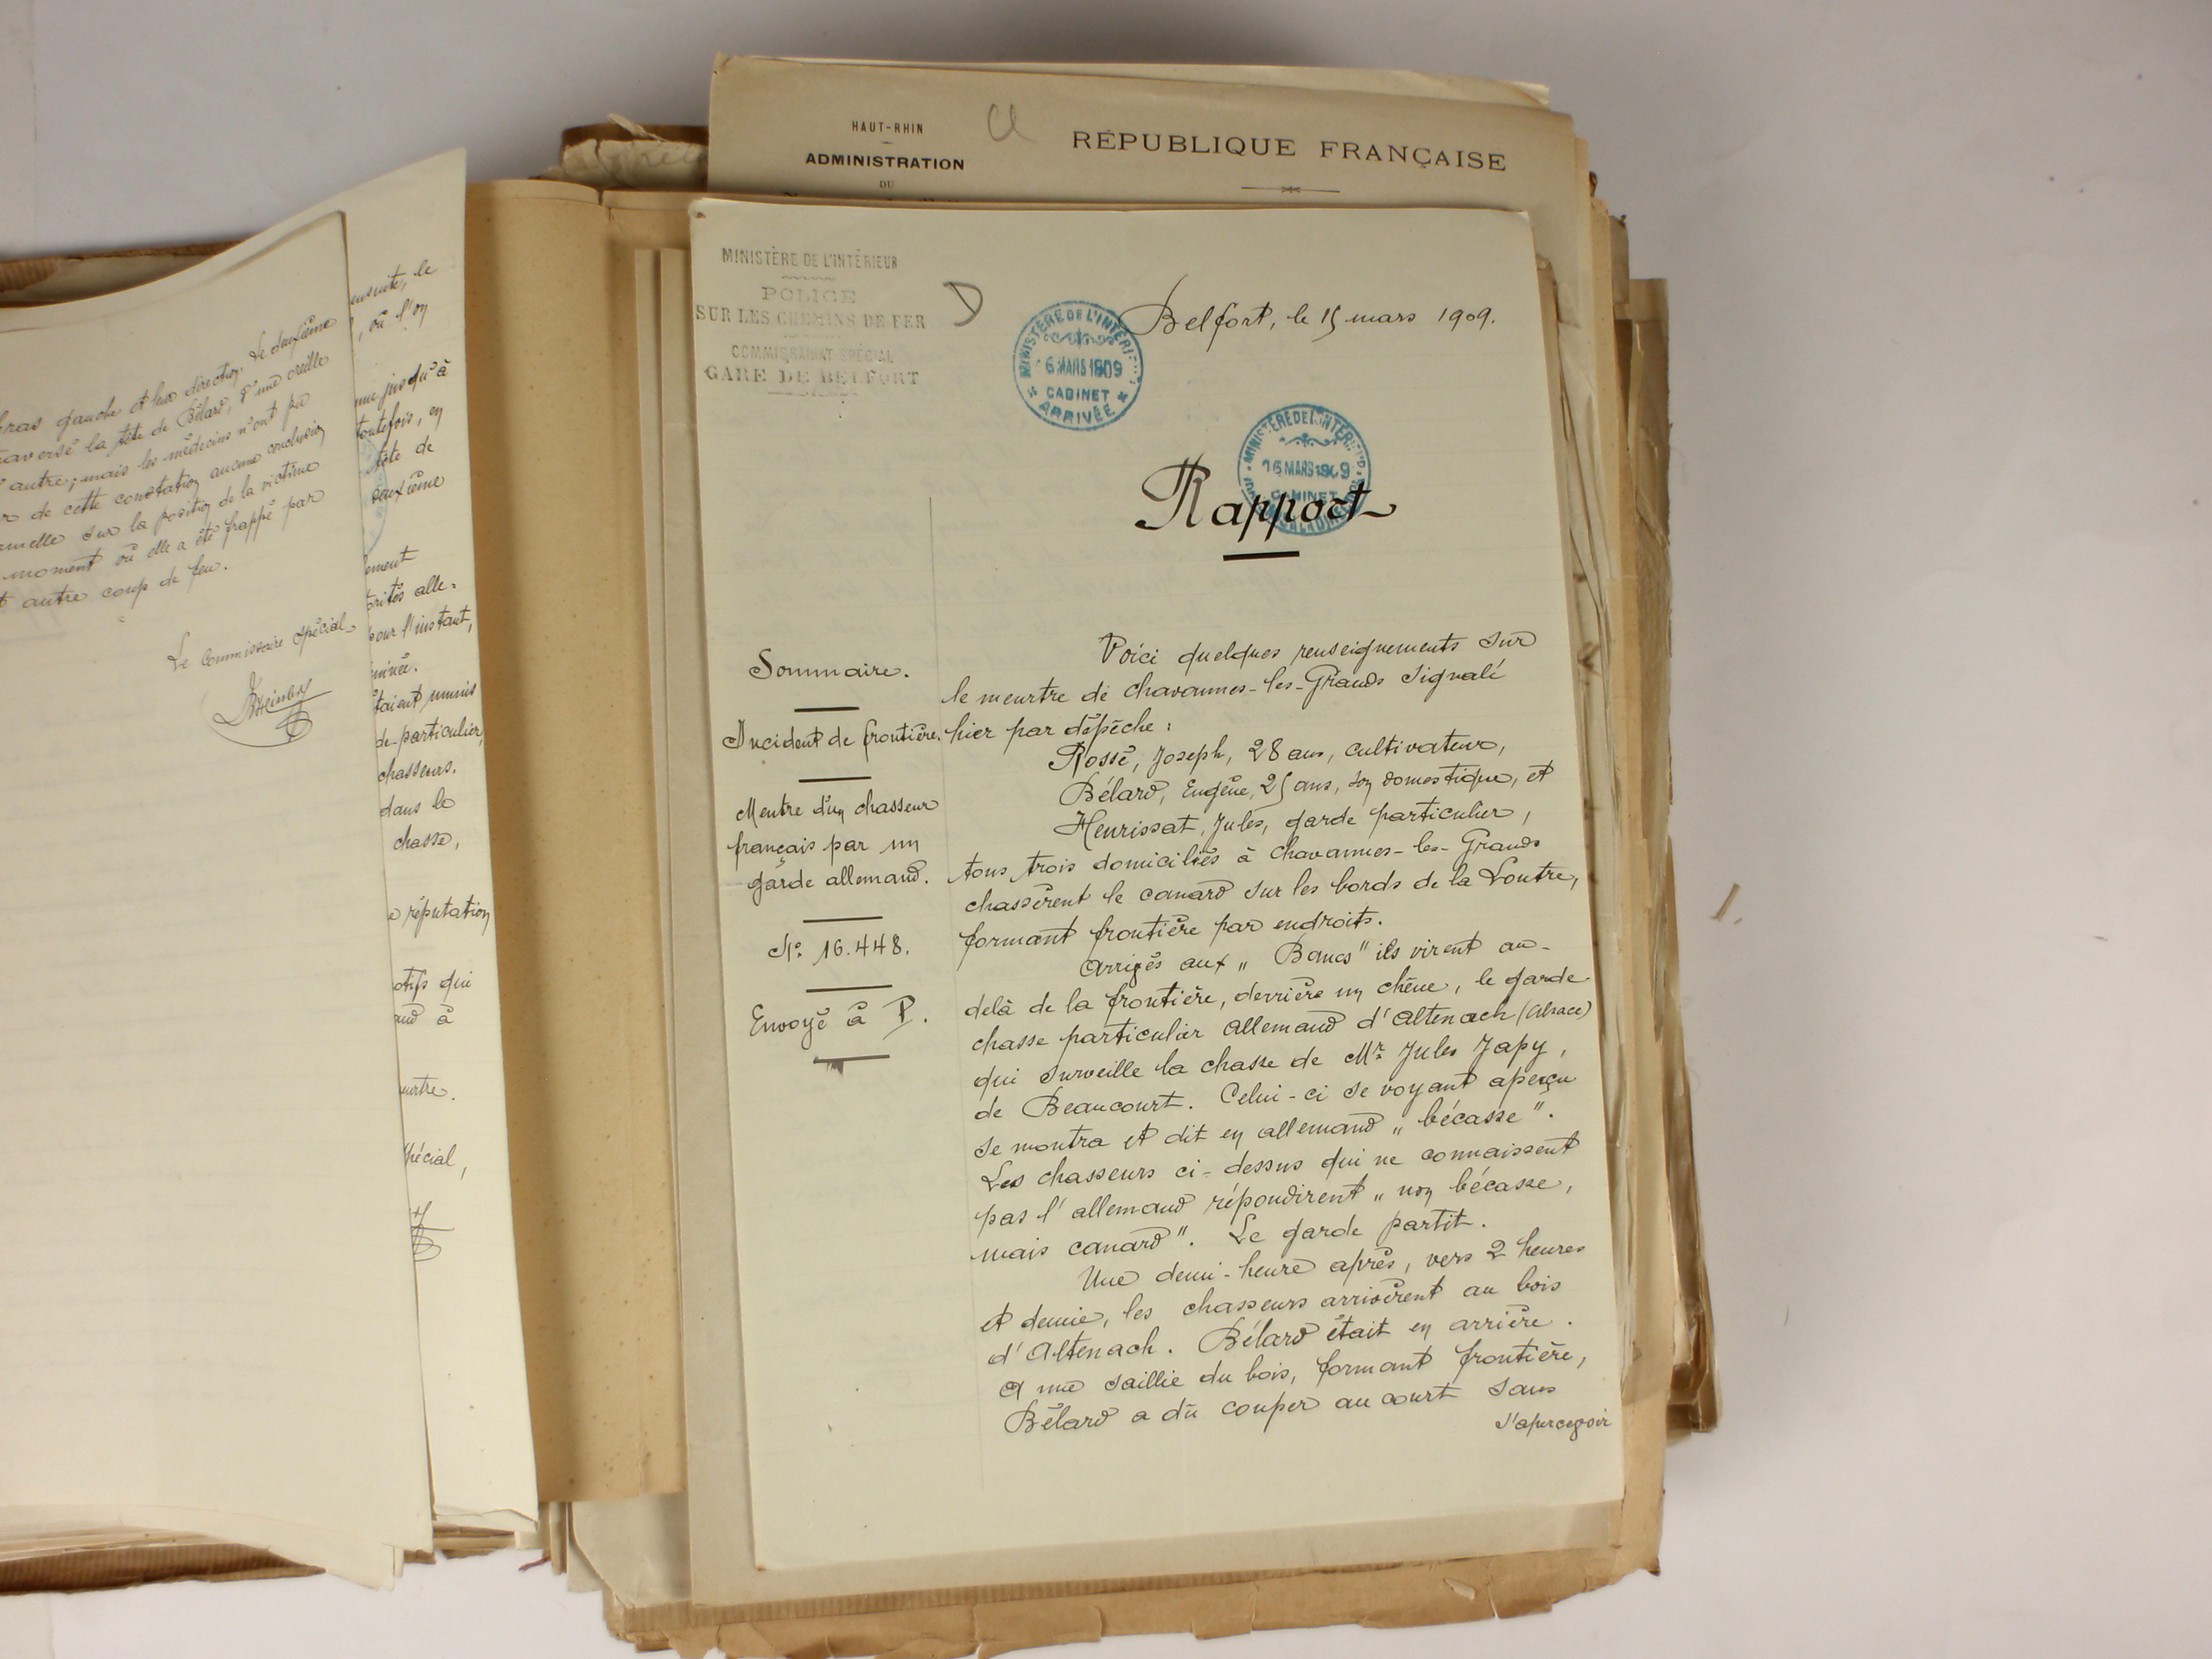 HAUT-RHIN
ADMINISTRATION
DU
RÉPUBLIQUE FRANÇAISE
bras gauche et leur direction. Le deuxième
traversé la tête de Bélard, d'une oreille
l'autre; mais les médecins n'ont pu
de cette constatation aucune conclusion
sur la position de la victime
moment où elle a été frappé par
autre coup de feu.
Le Commissaire spécial
ensuite, le
, où l'on
jusqu'à
toutefois, en
tête de
deuxième
alle-
pour l'instant,
taient munis
de particulier,
chasseurs.
dans le
chasse,
réputation
qui
à
spécial,
MINISTÈRE DE L'INTÉRIEUR
POLICE
SUR LES CHEMINS DE FER
COMMISSARIAT SPÉCIAL
GARE DE BELFORT
D
MINISTÈRE DE L'INTÉRIEUR
6 MARS 1909
CABINET
ARRIVÉE
Belfort, le 15 mars 1909.
MINISTÈRE DE L'INTÉRIEUR
16 MARS 1909
CABINET
Rapport
Sommaire.
Incident de frontière.
Meutre d'un chasseur
français par un
garde allemand.
No 16.448.
Envoyé à P.
Voici quelques renseignements sur
le meurtre de chavannes-les-Grands signalé
hier par dépêche :
Rossé, Joseph, 28 ans, cultivateur,
Bélard, Eugène, 25 ans, son domestique, et
Henrissat, Jules, garde particulier,
tous trois domiciliés à chavannes-les-Grands
chassèrent le canard sur les bords de la Loutre,
formant frontière par endroits.
Arrivés aux „ Bancs" ils virent au-
delà de la frontière, derrière un chêne, le garde
chasse particulier allemand d'Altenach (Alsace)
qui surveille la chasse de Mr Jules Japy,
de Beaucourt. Celui-ci se voyant aperçu
se montra et dit en allemand „ bécasse".
Les chasseurs ci-dessus qui ne connaissent
pas l'allemand répondirent „ non bécasse,
mais canard". Le garde partit.
Une demi-heure après, vers 2 heures
et demie, les chasseurs arrivèrent au bois
d'Altenach. Bélard était en arrière.
A une saillie du bois, formant frontière,
Bélard a dû couper au court sans
s'apercevoir